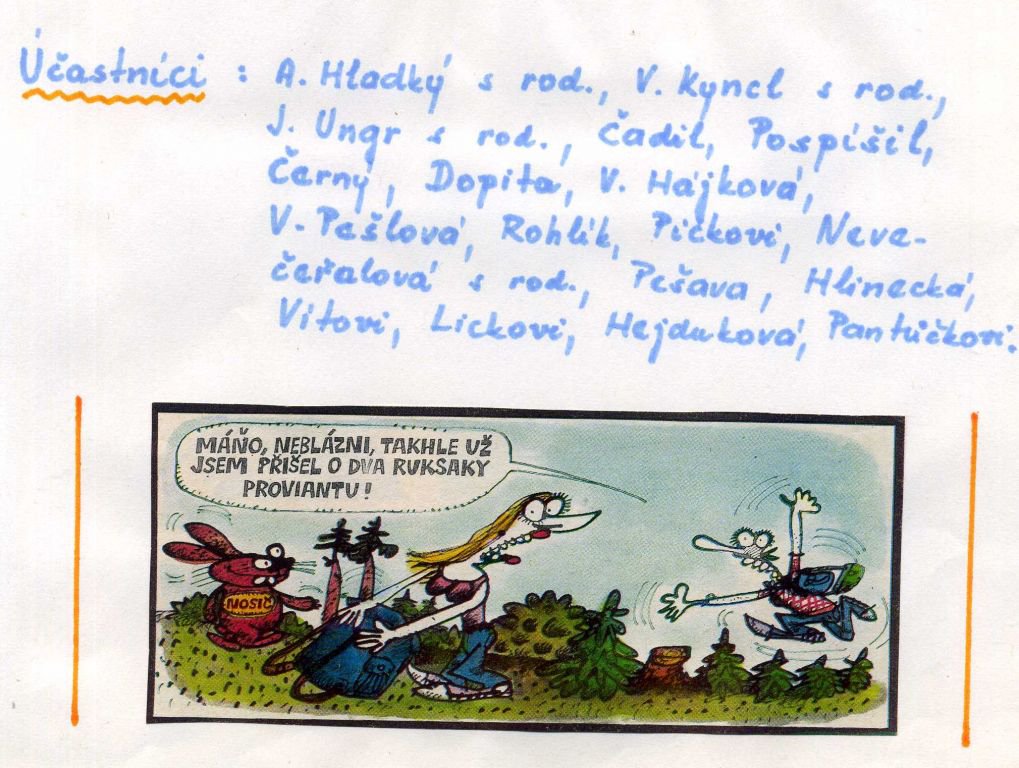 Účastníci : A. Hladký s rod., V. Kyncl s rod.,
J. Ungr s rod., Čadil, Pospíšil,
Černý, Dopita, V. Hájková,
V. Pešlová, Rohlík, Pickovi, Neve-
čeřalová s rod., Pešava, Hlinecká,
Vítovi, Lickovi, Hejduková, Pantúčkovi.
MÁŇO, NEBLÁZNI, TAKHLE UŽ
JSEM PŘIŠEL O DVA RUKSAKY
PROVIANTU!
NOSIČ